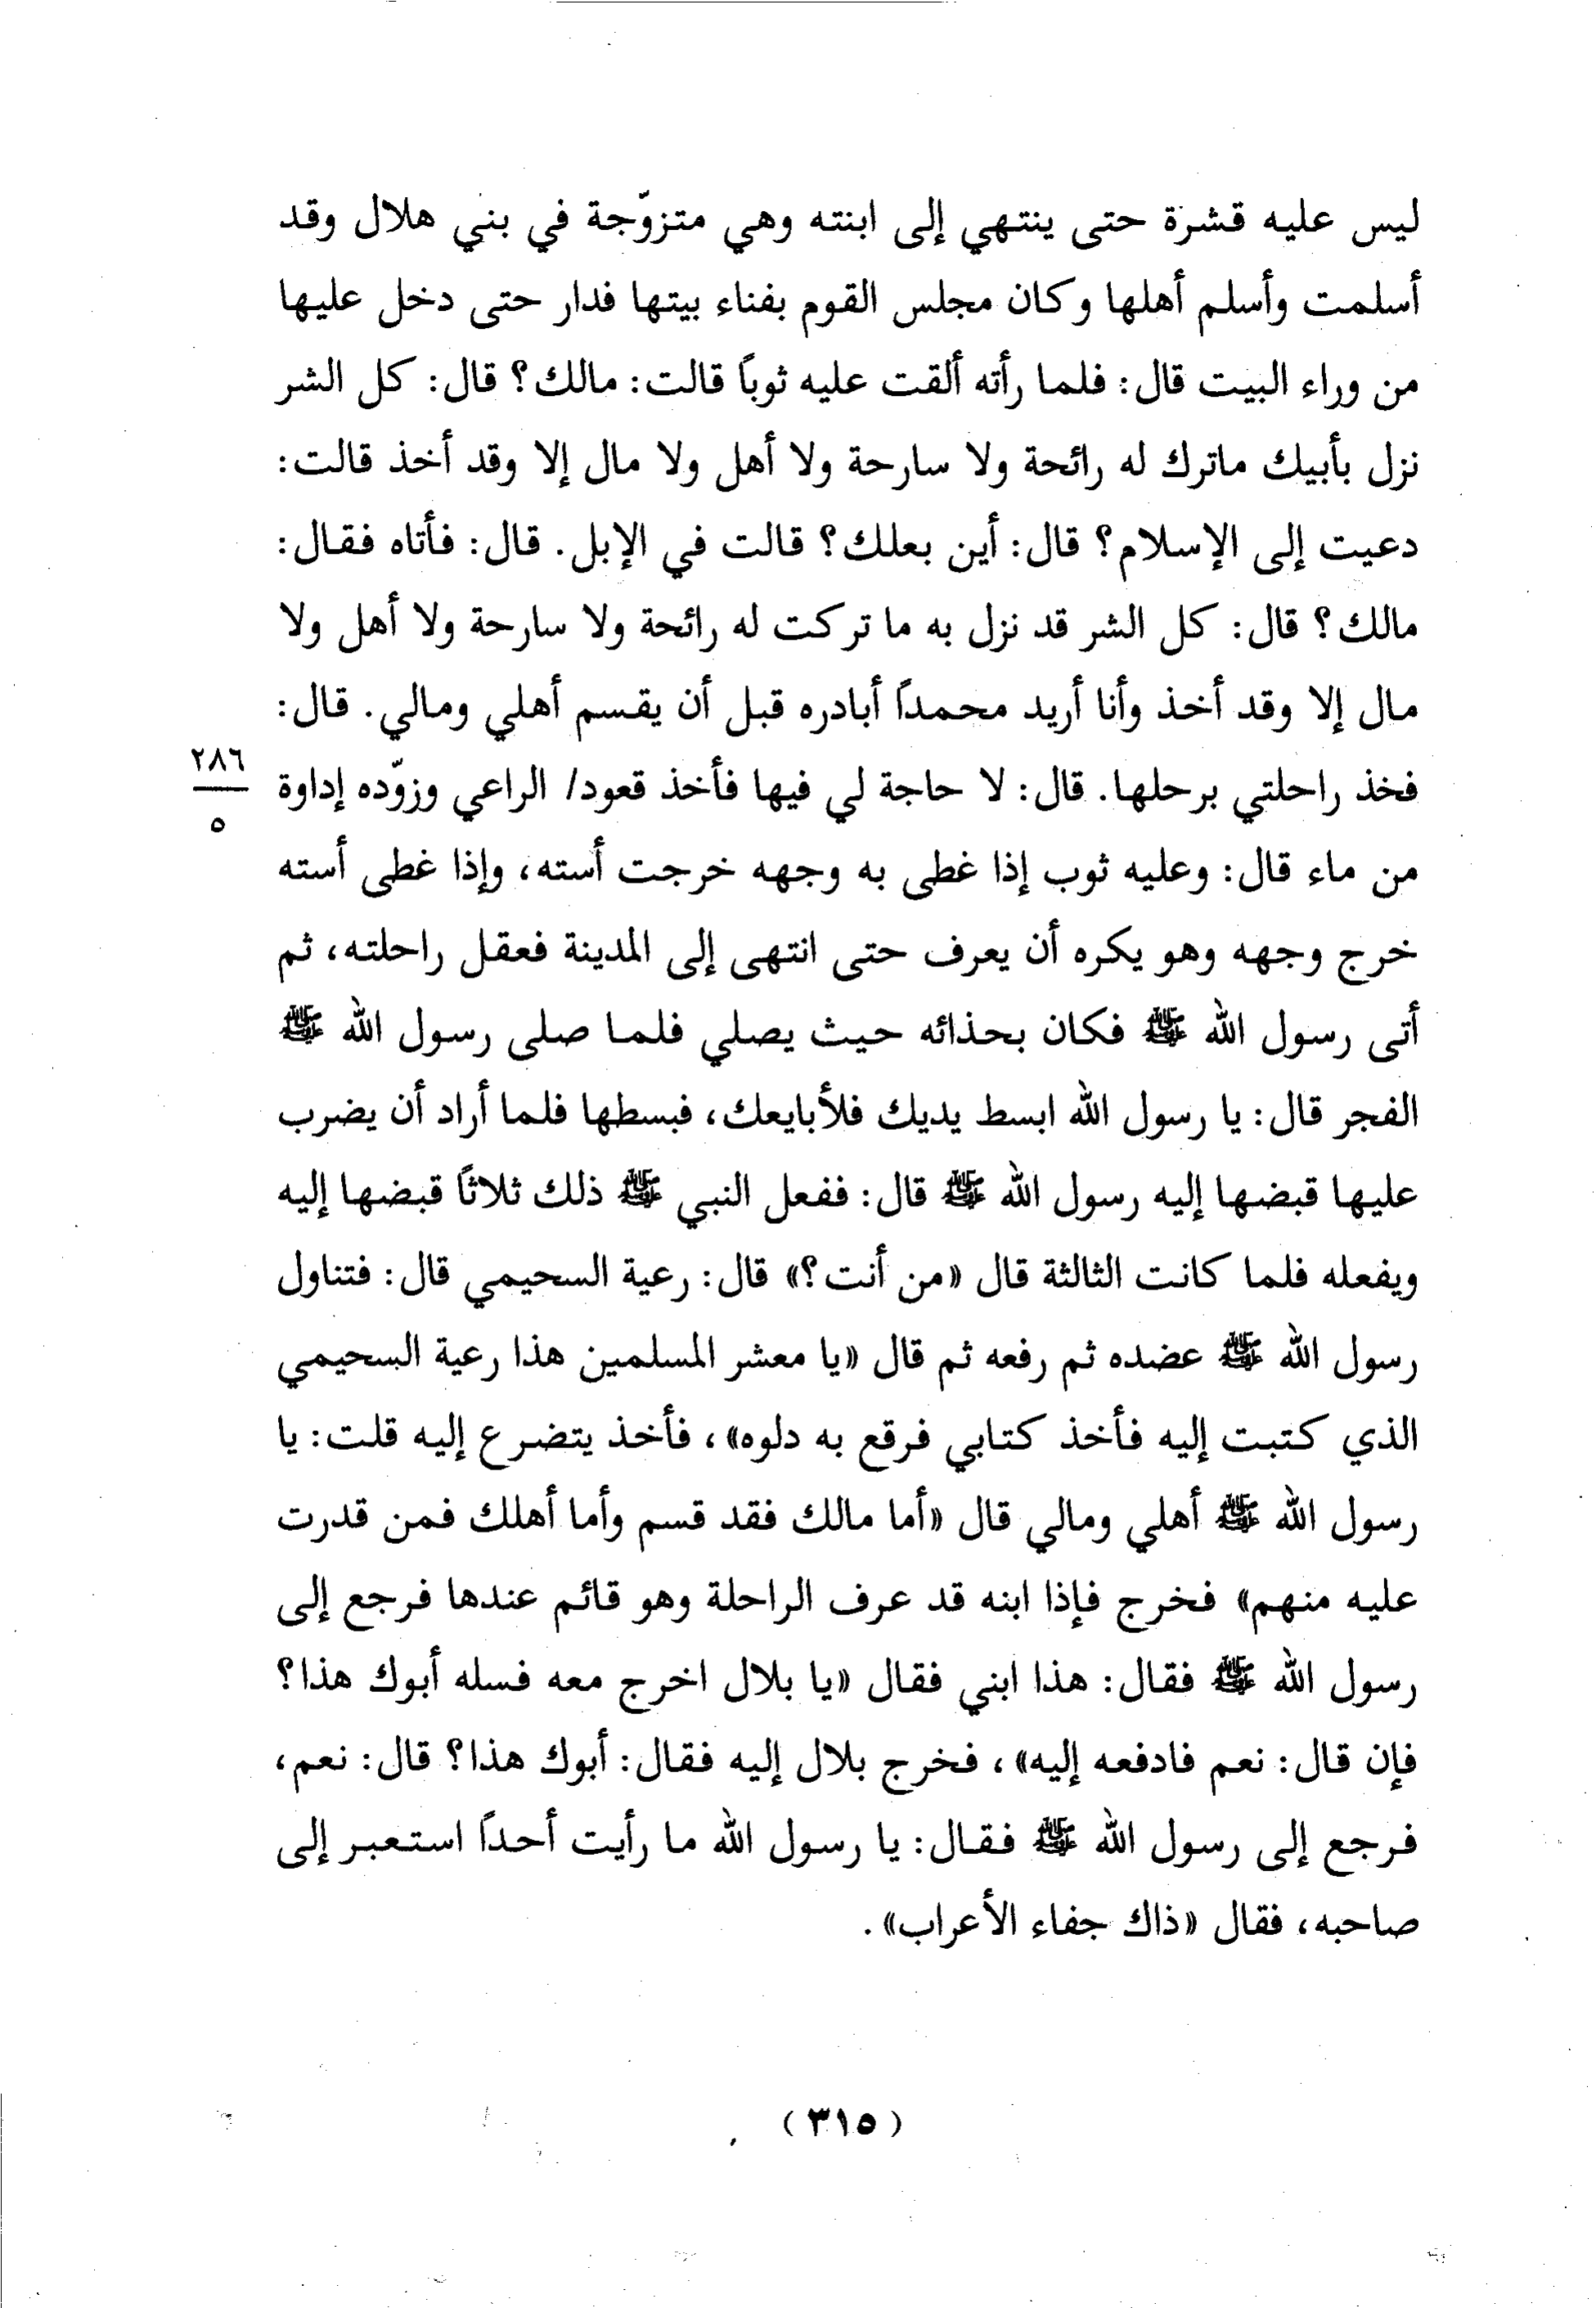 ليس عليه قشرة حتى ينتهي إلى ابنته وهي متزوّجة في بني هلال وقد
أسلمت وأسلم أهلها وكان مجلس القوم بفناء بيتها فدار حتى دخل عليها
من وراء البيت قال: فلما رأته ألقت عليه ثوباً قالت: مالك؟ قال: كل الشر
نزل بأبيك ماترك له رائحة ولا سارحة ولا أهل ولا مال إلا وقد أخذ قالت:
دعيت إلى الإسلام؟ قال: أين بعلك؟ قالت في الإبل. قال: فأتاه فقال:
مالك؟ قال: كل الشر قد نزل به ما تركت له رائحة ولا سارحة ولا أهل ولا
مال إلا وقد أخذ وأنا أريد محمداً أبادره قبل أن يقسم أهلي ومالي. قال:
فخذ راحلتي برحلها. قال: لا حاجة لي فيها فأخذ قعود/ الراعي وزوّده إداوة
٢٨٦
٥
من ماء قال: وعليه ثوب إذا غطى به وجهه خرجت أسته، وإذا غطى أسته
خرج وجهه وهو يكره أن يعرف حتى انتهى إلى المدينة فعقل راحلته، ثم
أتى رسول الله ﷺ فكان بحذائه حيث يصلي فلما صلى رسول الله ﷺ
الفجر قال: يا رسول الله ابسط يديك فلأبايعك، فبسطها فلما أراد أن يضرب
عليها قبضها إليه رسول الله ﷺ قال: ففعل النبي ﷺ ذلك ثلاثاً قبضها إليه
ويفعله فلما كانت الثالثة قال «من أنت؟» قال: رعية السحيمي قال: فتناول
رسول الله ﷺ عضده ثم رفعه ثم قال «يا معشر المسلمين هذا رعية السحيمي
الذي كتبت إليه فأخذ كتابي فرقع به دلوه»، فأخذ يتضرع إليه قلت: يا
رسول الله ﷺ أهلي ومالي قال «أما مالك فقد قسم وأما أهلك فمن قدرت
عليه منهم» فخرج فإذا ابنه قد عرف الراحلة وهو قائم عندها فرجع إلى
رسول الله ﷺ فقال: هذا ابني فقال «يا بلال اخرج معه فسله أبوك هذا؟
فإن قال: نعم فادفعه إليه»، فخرج بلال إليه فقال: أبوك هذا؟ قال: نعم،
فرجع إلى رسول الله ﷺ فقال: يا رسول الله ما رأيت أحداً استعبر إلى
صاحبه، فقال «ذاك جفاء الأعراب».
(٣١٥)